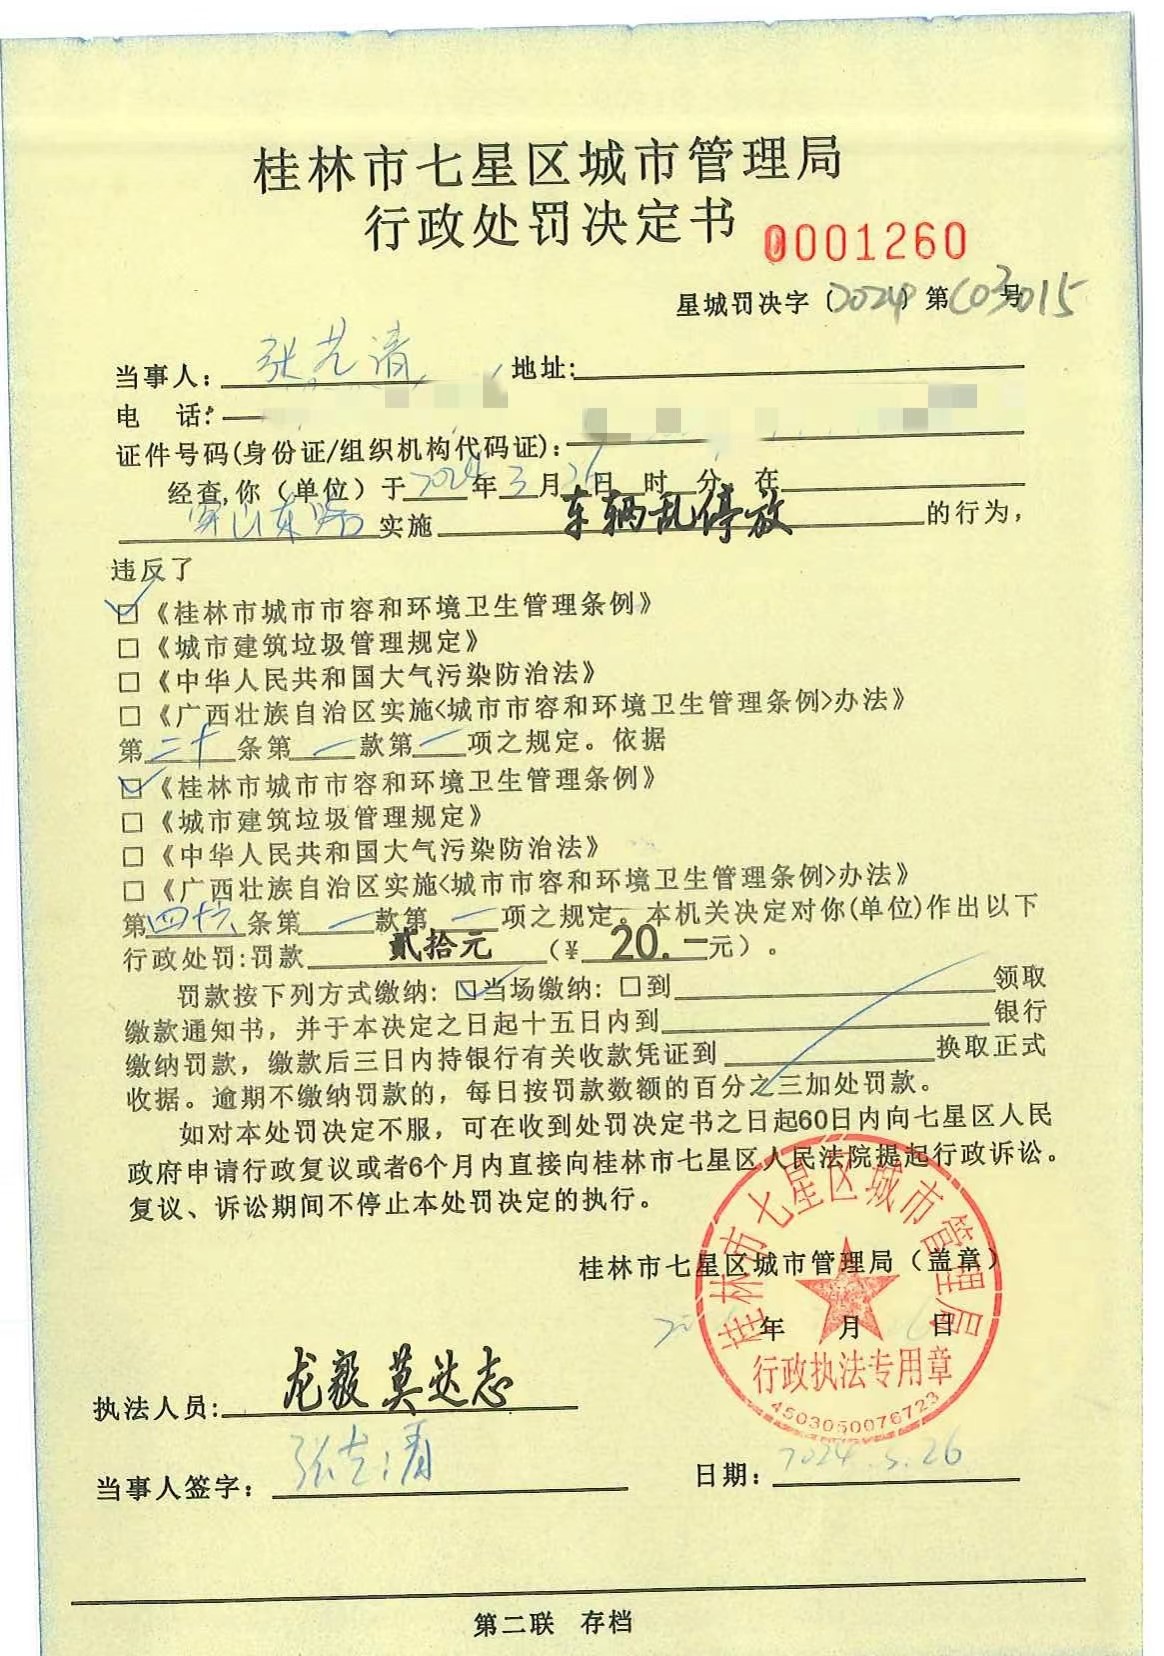 桂林市七星区城市管理局
行政处罚决定书 0001260
星城罚决字〔2024〕第C03015号
当事人：张 清 地址：
电 话：
证件号码(身份证/组织机构代码证)：
经查，你（单位）于2024年3月26日 时 分 在
穿山东路实施车辆乱停放的行为，
违反了
☑《桂林市城市市容和环境卫生管理条例》
□《城市建筑垃圾管理规定》
□《中华人民共和国大气污染防治法》
□《广西壮族自治区实施<城市市容和环境卫生管理条例>办法》
第二十条第一款第一项之规定。依据
☑《桂林市城市市容和环境卫生管理条例》
□《城市建筑垃圾管理规定》
□《中华人民共和国大气污染防治法》
□《广西壮族自治区实施<城市市容和环境卫生管理条例>办法》
第四十六条第一款第一项之规定。本机关决定对你(单位)作出以下
行政处罚：罚款贰拾元（¥20.一元）。
罚款按下列方式缴纳：☑当场缴纳：□到 领取
缴款通知书，并于本决定之日起十五日内到 银行
缴纳罚款，缴款后三日内持银行有关收款凭证到 换取正式
收据。逾期不缴纳罚款的，每日按罚款数额的百分之三加处罚款。
如对本处罚决定不服，可在收到处罚决定书之日起60日内向七星区人民
政府申请行政复议或者6个月内直接向桂林市七星区人民法院提起行政诉讼。
复议、诉讼期间不停止本处罚决定的执行。
桂林市七星区城市管理局（盖章）
年 月 日
桂林市七星区城市管理局
行政执法专用章
4503050076723
执法人员：龙毅 莫达志
当事人签字：张 清 日期：2024.3.26
第二联 存档